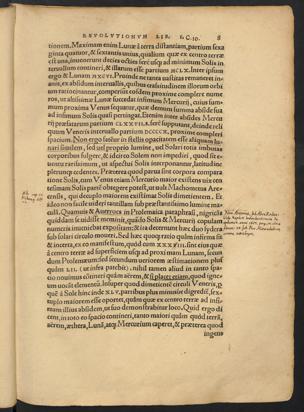 REVOLVTIONVM LIB. I. C. 10. 8
tionem. Maximam enim Lunæ à terra distantiam, partium sexa
ginta quatuor, & sextantis unius, qualium quæ ex centro terræ
est una, inuenerunt decies octies ferè usq; ad minimum Solis in
teruallum contineri, & illarum esse partium MCLX. Inter ipsum
ergo & Lunam MXCVI. Proinde ne tanta uastitas remaneret in-
anis, ex absidum interuallis, quibus crassitudinem illorum orbi
um ratiocinantur, comperiunt eosdem proxime complere nume
ros, ut altissimæ Lunæ succedat infimum Mercurij, cuius sum-
mum proxima Venus sequatur, quæ demum summa abside sua
ad infimum Solis quasi pertingat. Etenim inter absides Mercu
rij præfatarum partium CLXXVII.S. ferè supputant, deinde reli
quum Veneris interuallo partium DCCCCX. proxime compleri
spacium. Non ergo fatentur in stellis opacitatem esse aliquam lu-
nari similem, sed uel proprio lumine, uel Solari totis imbutas
corporibus fulgere, & idcirco Solem non impediri, quòd sit e-
uentu rarissimum, ut aspectui Solis interponantur, latitudine
plerunq; cedentes. Præterea quòd parua sint corpora compara
tione Solis, cum Venus etiam Mercurio maior existens uix cen
tesimam Solis partem obtegere potest, ut uult Machometus Are
censis, qui decuplo maiorem existimat Solis dimetientem. Et
ideo non facile uideri tantillam sub præstantissimo lumine ma
culã. Quamuis & Auerroes in Ptolemaica paraphrasi, nigricãs
quiddam se uidisse meminit, quando Solis & Mercurij copulam
numeris inueniebat expositam: & ita decernunt hæc duo sydera
sub solari circulo moueri. Sed hæc quoq; ratio quàm infirma sit
& incerta, ex eo manifestum, quòd cum XXXVIII. sint eius quæ
à centro terræ ad superficiem usq; ad proximum Lunæ, secun-
dum Ptolemæum, sed secundum ueriorem æstimationem plus
quàm LII. (ut infra patebit) nihil tamen aliud in tanto spa-
cio nouimus contineri quàm aërem, & si placet etiam, quod igne-
um uocãt elementũ. Insuper quòd dimetientẽ circuli Veneris, p
quẽ à Sole hinc inde XLV. partibus plus minusue digreditur, sex-
tuplo maiorem esse oportet, quàm quæ ex centro terræ ad infi-
mam illius absidem, ut suo demonstrabitur loco. Quid ergo di
cent, in toto eo spacio contineri, tanto maiori quàm quod terrã,
aërem, æthera, Lunã, atq; Mercurium caperet, & præterea quod
ingens